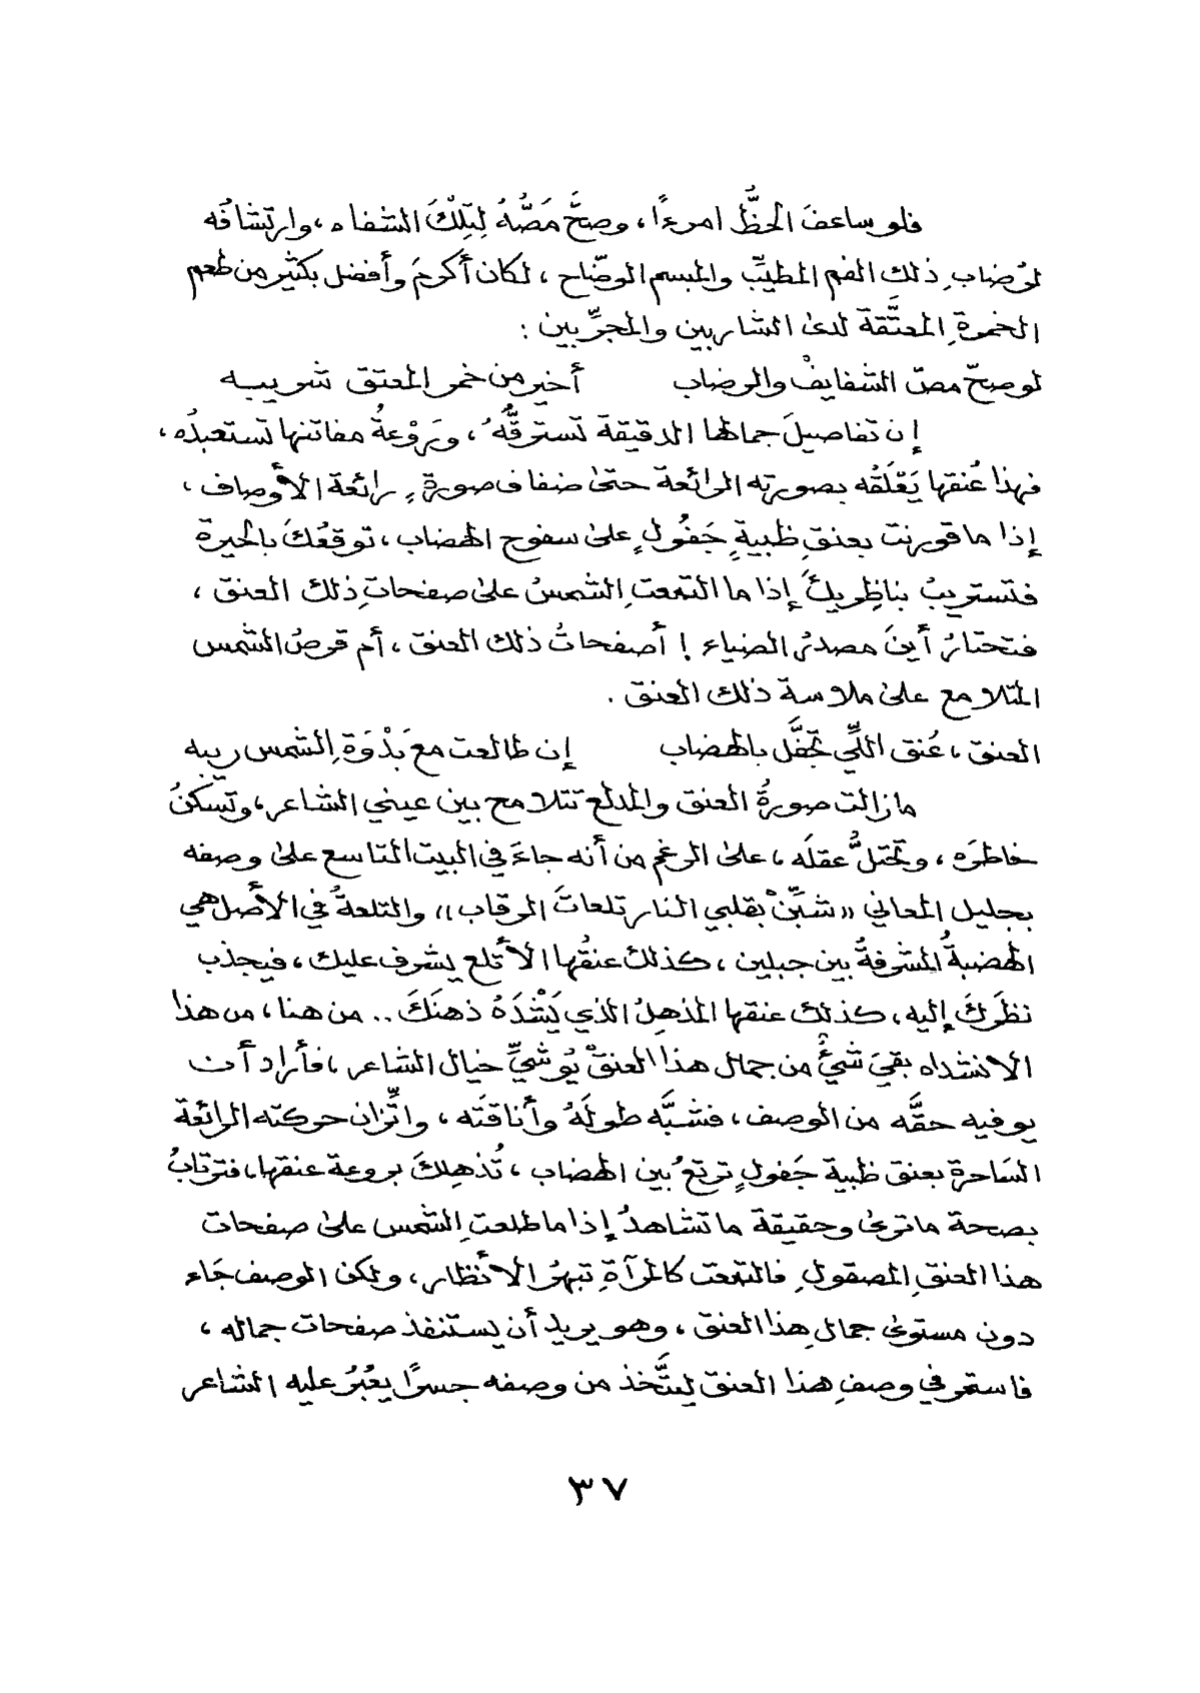 فلو ساعفَ الحظُّ امرءًا ، وصحَّ مَصُّهُ لِتِلْكَ الشفاه ، وارتشافُه
لرُضابِ ذلك الفم المطيِّب والمبسم الوضّاح ، لكان أكرمَ وأفضل بكثير من طعم
الخمرةِ المعتَّقة لدى الشاربين والمجرِّبين :
لو صحّ مصّ الشفايفْ والرضاب أخير من خمر المعتق شريبه
إن تفاصيلَ جمالها الدقيقة تسترقُّهُ ، ورَوْعةُ مفاتنها تستعبدُه ،
فهذا عُنقها يَعْلَقُه بصورته الرائعة حتى ضفاف صورةٍ رائعة الأوصاف ،
إذا ما قورنت بعنقِ ظبيةٍ جَفُولٍ على سفوح الهضاب ، توقعُكَ بالحيرة
فتستريبُ بناظِريكَ إذا ما التمعتِ الشمسُ على صفحاتِ ذلك العنق ،
فتحتارُ أينَ مصدرُ الضياء ! أصفحاتُ ذلك العنق ، أم قرصُ الشمس
المتلامع على ملاسة ذلك العنق .
العنق ، عُنق اللِّي تجفَّل بالهضاب إن طالعت معَ بَدْوَةِ الشمس ريبه
مازالت صورةُ العنق والمدلع تتلامح بين عيني الشاعر ، وتسكنُ
خاطرَه ، وتحتلُّ عقلَه ، على الرغم من أنه جاءَ في البيت التاسع على وصفه
بجليل المعاني « شبِّنْ بقلبي النار تلعاتَ الرقاب » والتلعةُ في الأصل هي
الهضبةُ المشرفةُ بين جبلين ، كذلك عنقُها الأتلع يشرف عليك ، فيجذب
نظرَكَ إليه ، كذلك عنقها المذهِلُ الذي يَشْدَهُ ذهنَكَ .. من هنا ، من هذا
الانشداه بقيَ شيءٌ من جمال هذا العنقْ يُوشيِّ خيال الشاعر ، فأراد أن
يوفيه حقَّه من الوصف ، فشبَّه طولَهُ وأناقتَه ، واتِّزان حركته الرائعة
السَاحرة بعنق ظبية جَفولٍ ترتعُ بين الهضاب ، تُذهِلكَ بروعة عنقها ، فترتابُ
بصحة ما ترى وحقيقة ما تشاهدُ إذا ما طلعتِ الشمس على صفحات
هذا العنقِ المصقولِ فالتمعت كالمرآةِ تبهرُ الأنظار ، ولكن الوصف جَاء
دون مستوى جمالِ هذا العنق ، وهو يريد أن يستنفذ صفحات جماله ،
فاستمر في وصفِ هذا العنق ليتَّخذ من وصفه جسرًا يعْبُرُ عليه الشاعر
٣٧